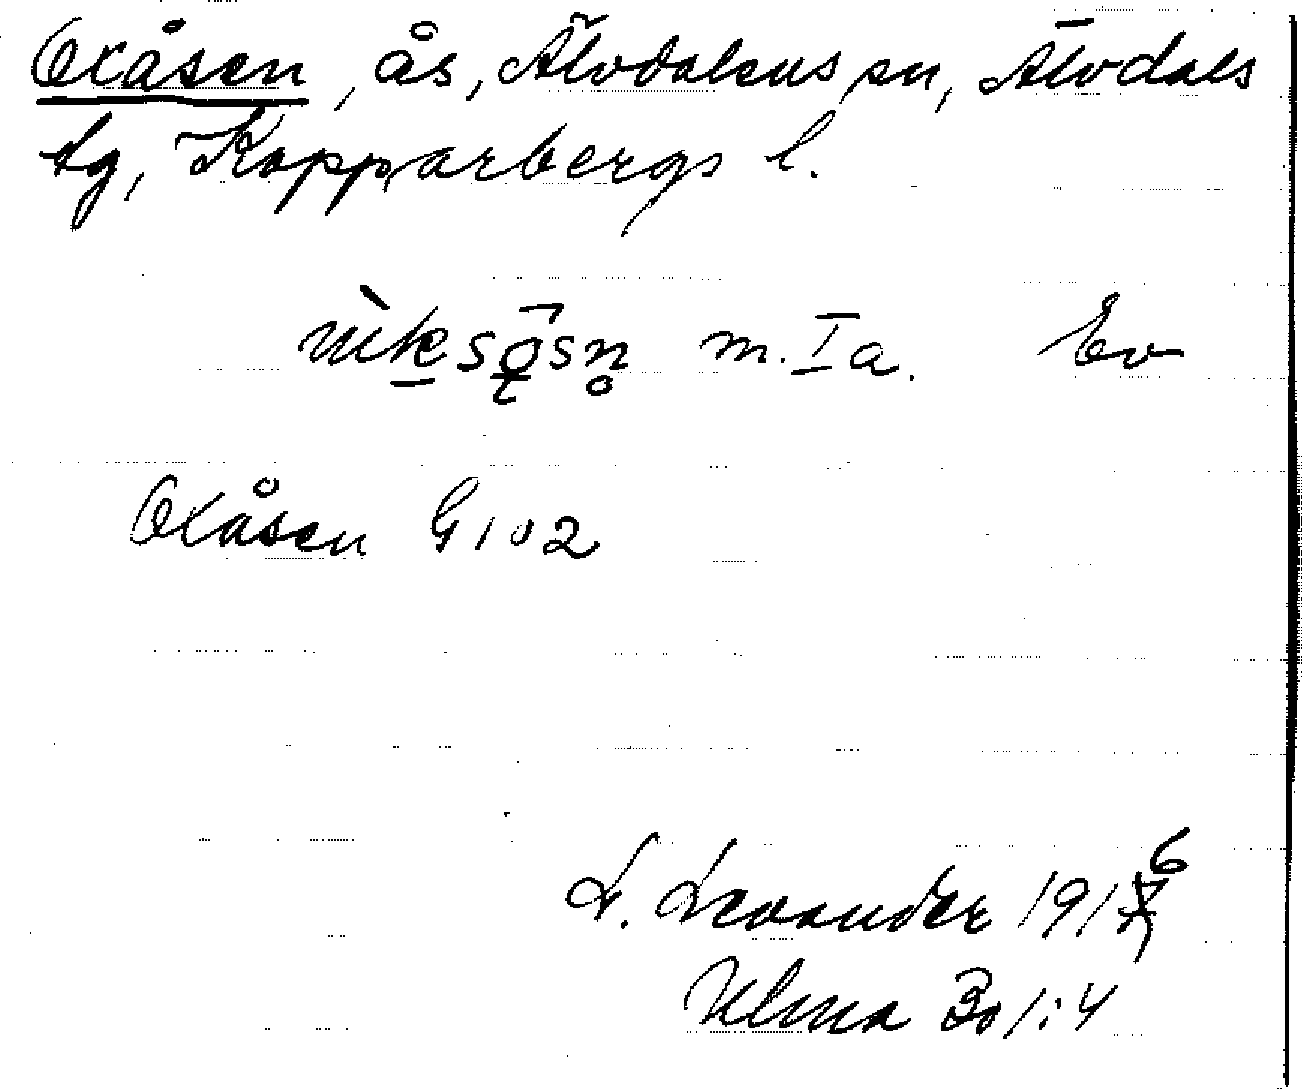 Oxåsen, ås, Älvdalens sn, Älvdals
tg, Kopparbergs l.
m. Ia. Ev
Oxåsen G 102
L. Levander 1916
Ulma 301:4